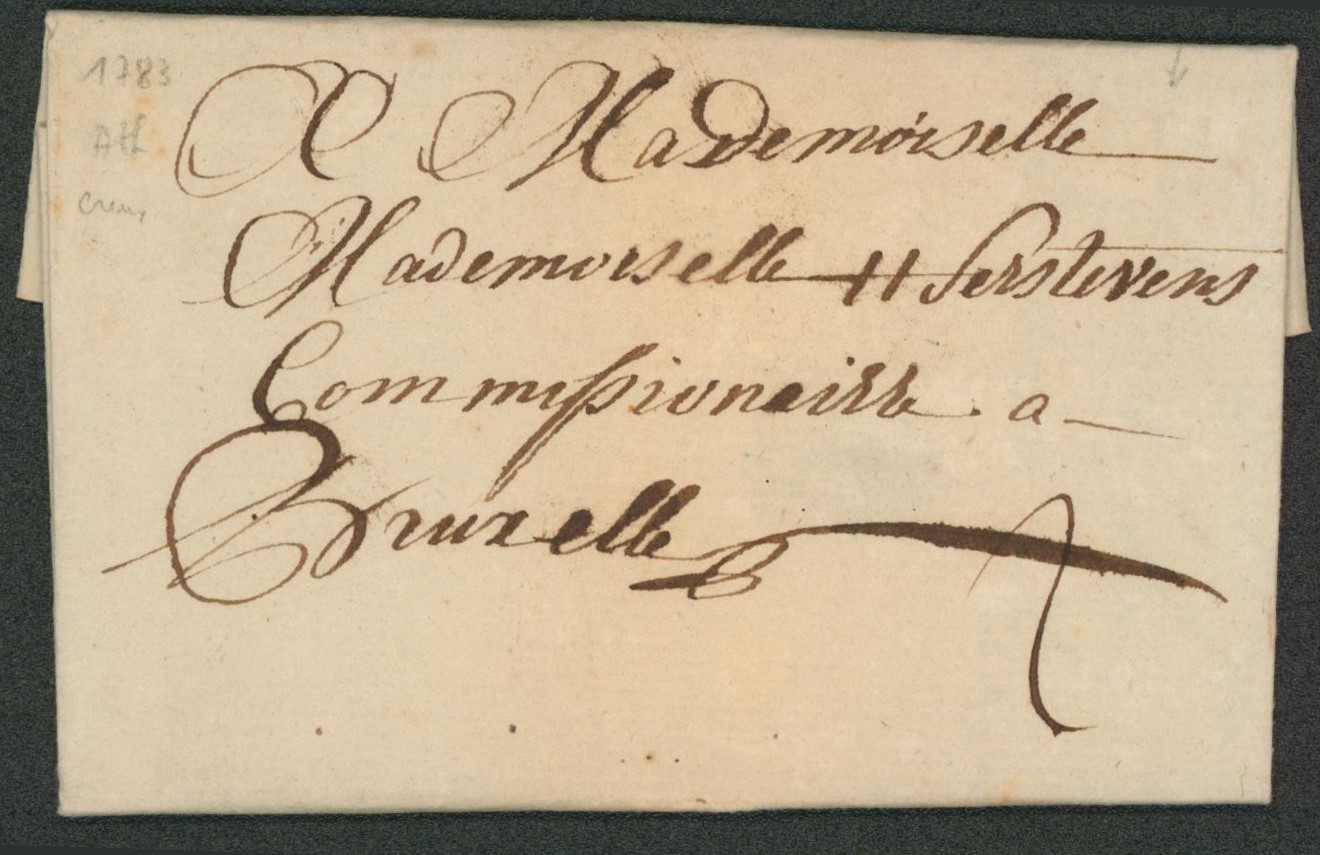 1783
Ath
A Mademoiselle
Mademoiselle H Serstevens
Commissionairre a
Bruxelle